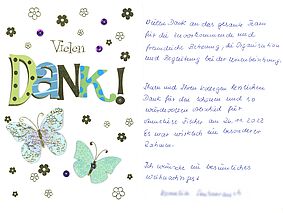 Vielen
DANK!
Vielen Dank an das gesamte Team
für die zuvorkommende und
freundliche Betreuung, die Organisation
und Begleitung bei der Urnenbeisetzung.
Ihnen und Ihren Kollegen herzlichen
Dank für den schönen und so
würdevollen Abschied für
Fischer am 26.11.2022
Es war wirklich ein besonderer
Rahmen.
Ich wünsche ein besinnliches
Weihnachtsfest